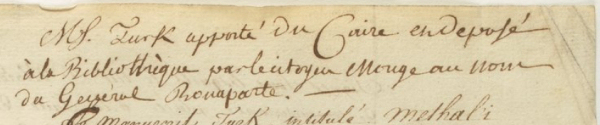 Ms. Turk apporté du Caire en deposé
à la Bibliothèque par le citoyen Monge au nom
du General Bonaparte. —
Manuscrit Turk intitulé Methali